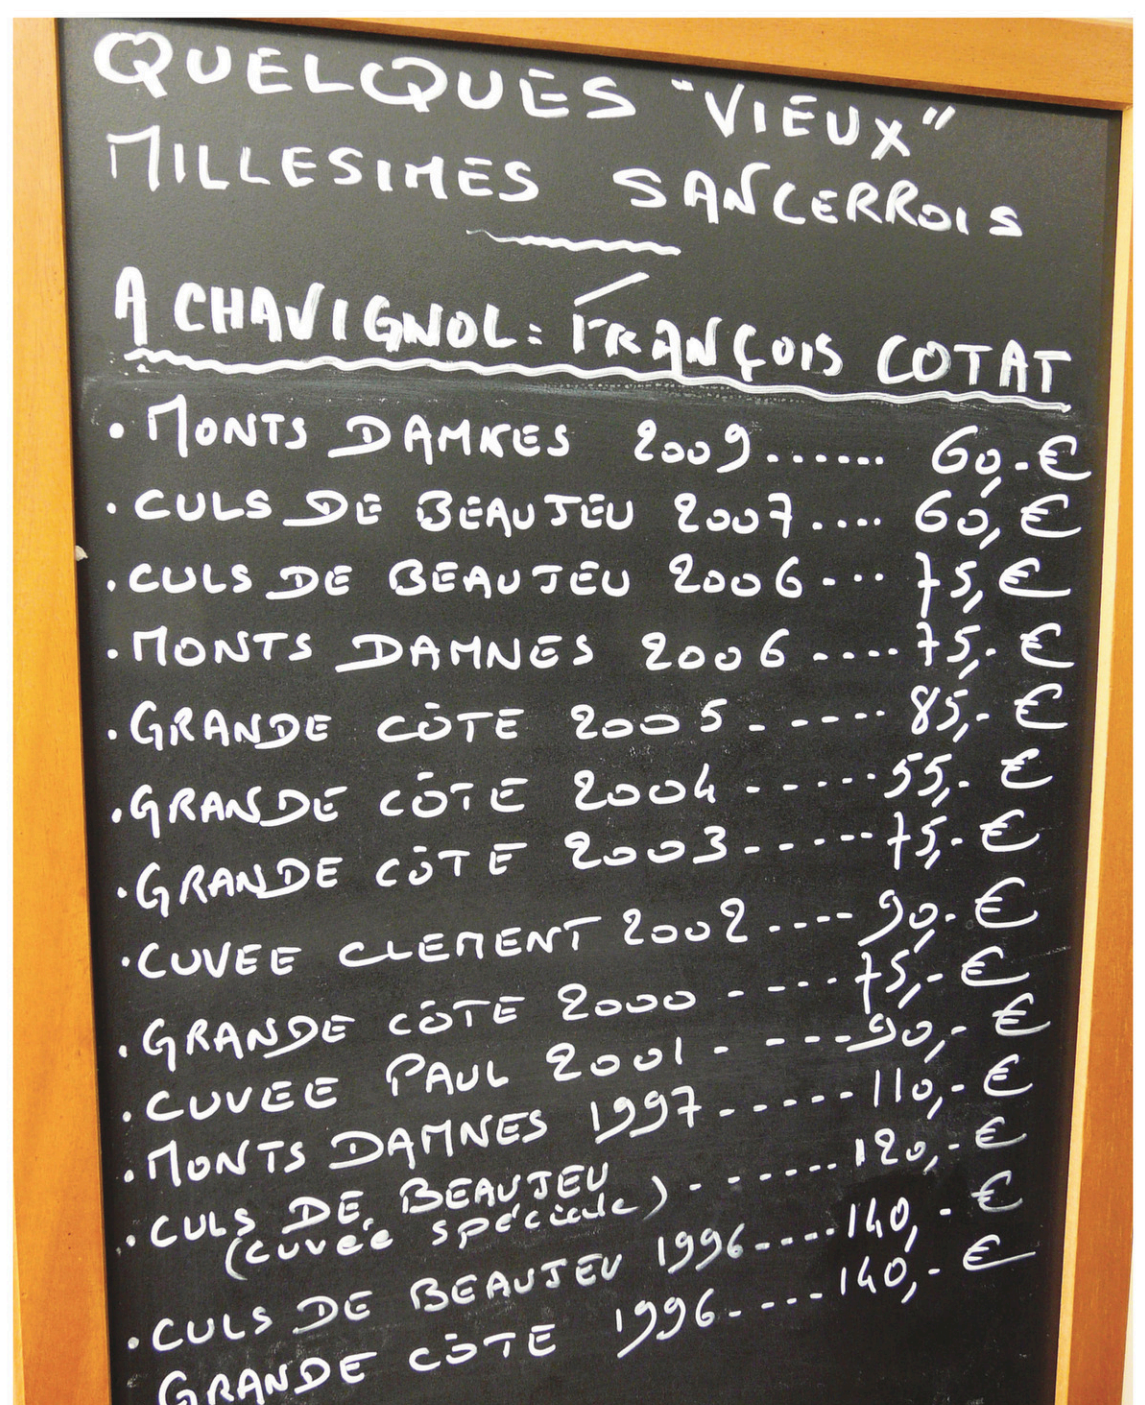 QUELQUES "VIEUX"
MILLESIMES SANCERROIS
A CHAVIGNOL: FRANÇOIS COTAT
. MONTS DAMNES 2009...... 60,-€
. CULS DE BEAUJEU 2007.... 60,€
. CULS DE BEAUJEU 2006--.. 75,€
. MONTS DAMNES 2006 ---- 75,- €
. GRANDE CÔTE 2005 ----- 85,- €
. GRANDE CÔTE 2004 ----- 55,- €
. GRANDE CÔTE 2003 ----- 75,- €
. CUVEE CLEMENT 2002 ---- 90,- €
. GRANDE CÔTE 2000 ---- 75,- €
. CUVEE PAUL 2001 ---- 90,- €
. MONTS DAMNES 1997 ----- 110,- €
. CULS DE BEAUJEU ------ 120,- €
(cuvée spéciale)
. CULS DE BEAUJEU 1996 ---- 140,- €
GRANDE CÔTE 1996 ---- 140,- €